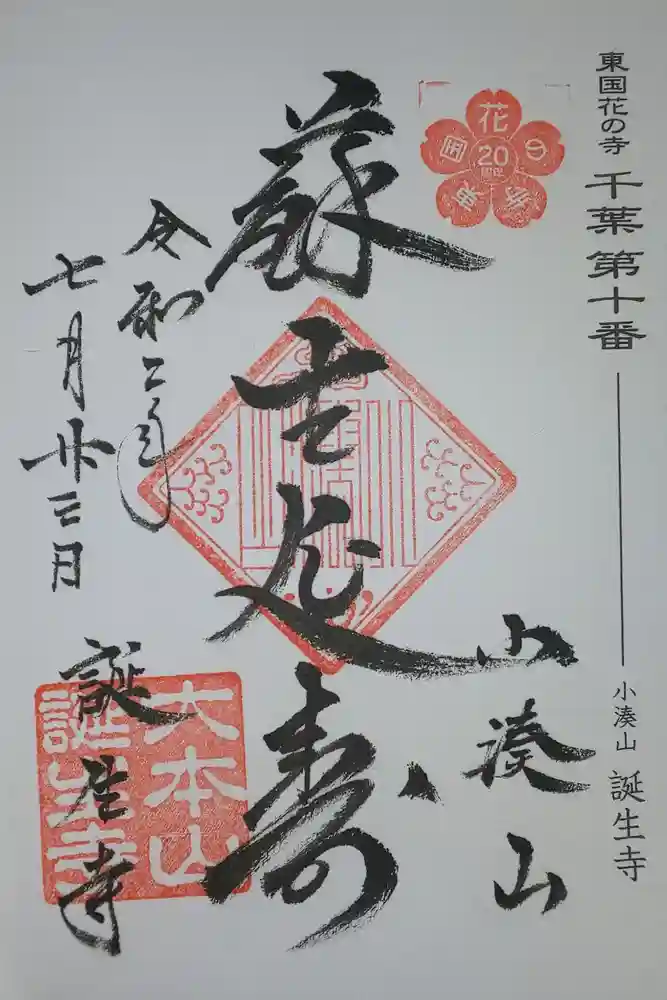 東国花の寺 千葉第十番
小湊山 誕生寺
東国花の寺
20
周年
小湊山
蘇生延寿
令和二年
七月廿三日
誕生寺
大本山
誕生寺